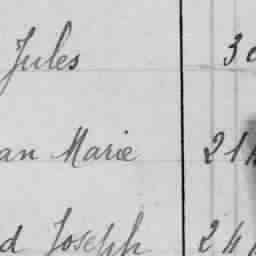 Jules 30
an Marie 21
d Joseph 24